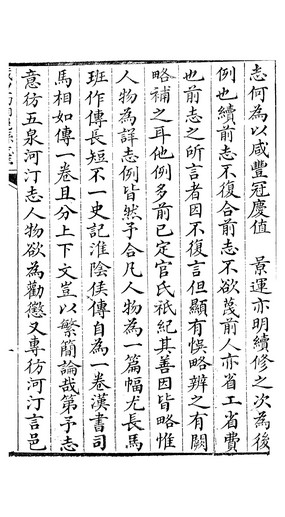 志何為以咸豐冠慶值　景運亦明續修之次為後
例也續前志不復合前志不欲蔑前人亦省工省費
也前志之所言者因不復言但顯有悞略辨之有闕
略補之耳他例多前已定官氏祇紀其善因皆略惟
人物為詳志例皆然予合凡人物為一篇幅尤長馬
班作傳長短不一史記淮陰侯傳自為一卷漢書司
馬相如傳一卷且分上下文豈以繁簡論哉第予志
意彷五泉河汀志人物欲為勸懲又專彷河汀言邑